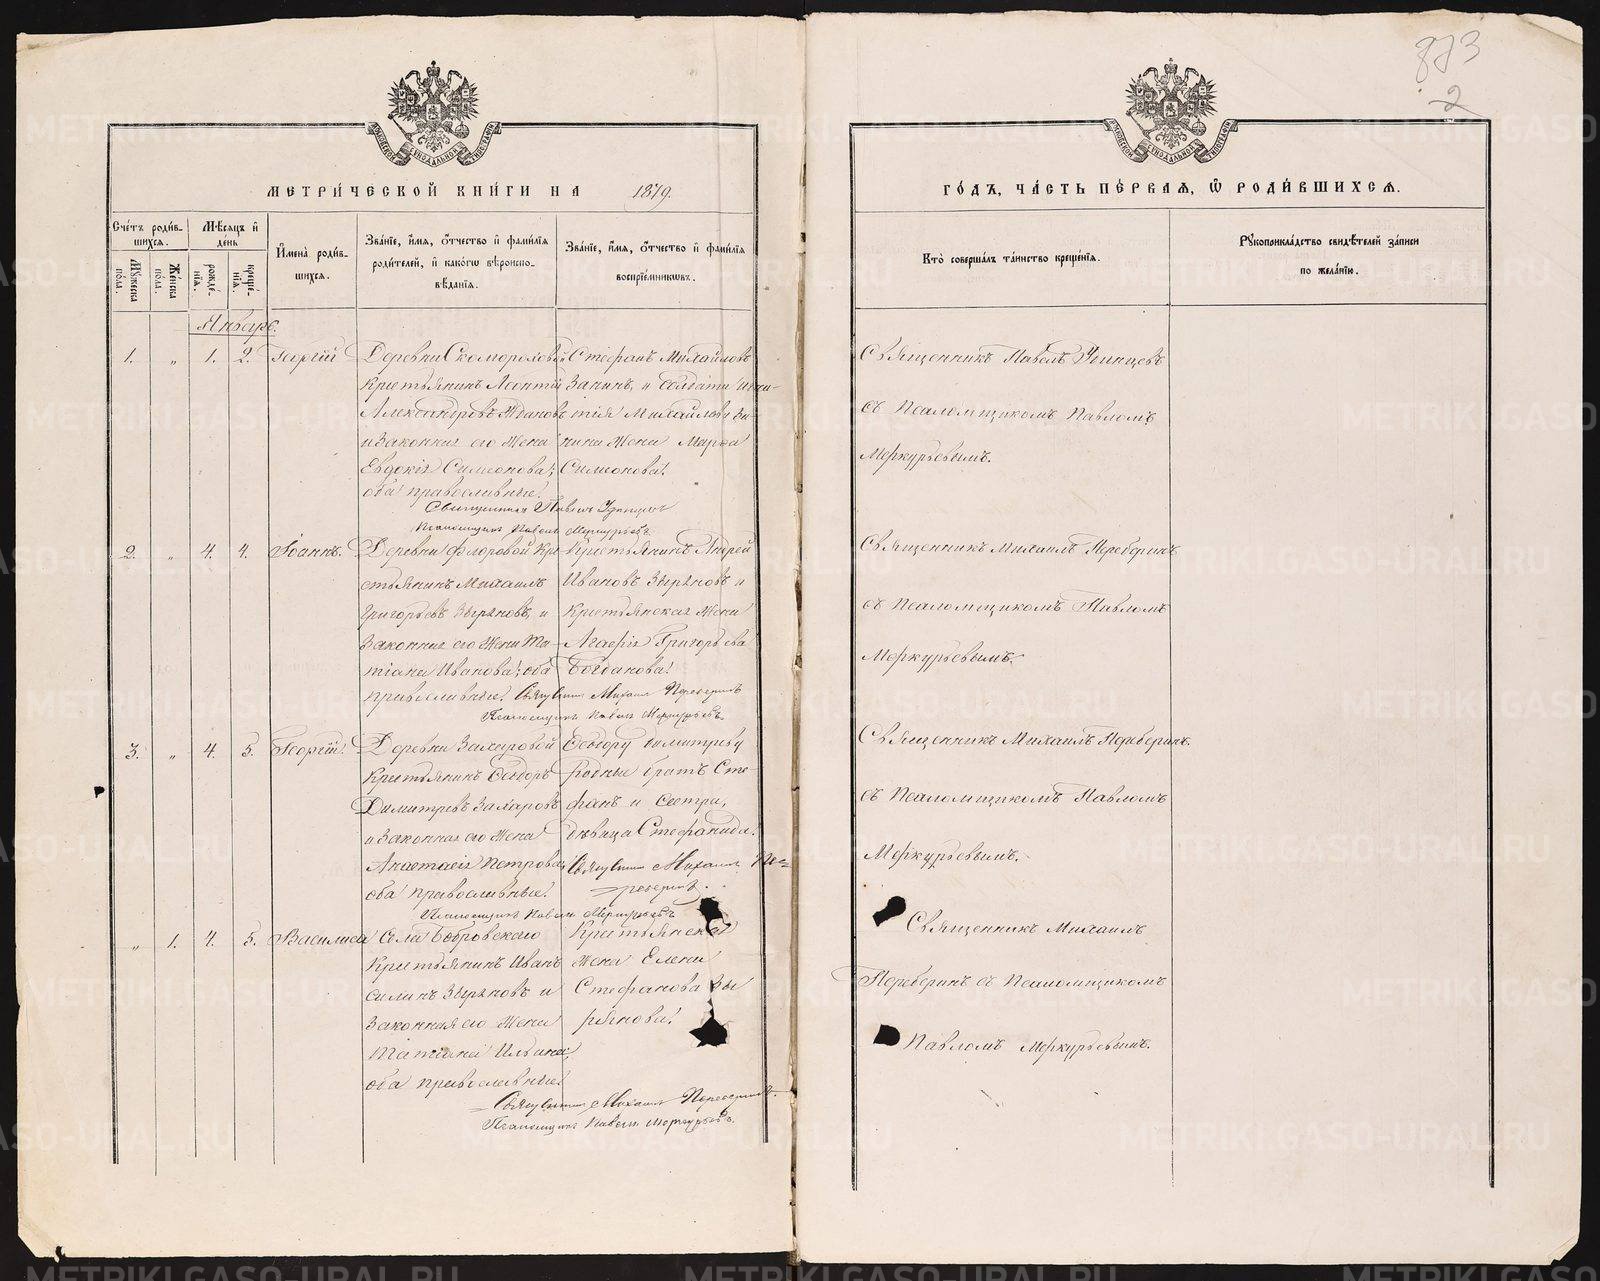 873
2
МОСКОВСКОЙ СУНОДАЛЬНОЙ ТИПОГРАФІИ
МОСКОВСКОЙ СУНОДАЛЬНОЙ ТИПОГРАФІИ
МЕТРИ́ЧЕСКОЙ КНИ́ГИ НА 1879.
ГО́ДЪ, ЧА́СТЬ ПЕ́РВАЯ, Ѿ РОДИ́ВШИХСЯ.
Сче́тъ роди́в-
шихся.
Му́жеска по́ла.
Же́нска по́ла.
Мѣ́сяцъ и де́нь
рожде́-нїя.
креще́-нїя.
Имена̀ роди́в-
шихся.
Зва́нїе, и́мя, о́тчество и фами́лїя
роди́телей, и како́гѡ вѣроиспо-
вѣ́данїя.
Зва́нїе, и́мя, о́тчество и фами́лїя
воспрїе́мниковъ.
Кто̀ соверша́лъ та́инство креще́нїя.
Рукоприкла́дство свидѣ́телей за́писи
по жела́нїю.
Январь.
1. „ 1. 2. Георгій
Деревни Скомороховой
Крестьянинъ Леонтій
Александровъ Ивановъ
и законная его жена
Евдокія Симеонова;
оба православные.
Стефанъ Михайловъ
Занинъ, и
Михайлова За-
нина жена Марѳа
Симеонова.
Священникъ Павелъ
Псаломщикъ Павелъ Меркурьевъ
Священникъ Павелъ
съ Псаломщикомъ Павломъ
Меркурьевымъ.
2. „ 4. 4. Іоаннъ.
Деревни Флоровой Кре-
стьянинъ Михаилъ
Григорьевъ Зыряновъ, и
законная его жена Та-
тіана Иванова; оба
православные.
Крестьянинъ Андрей
Ивановъ Зыряновъ и
Крестьянская жена
Агафія Григорьева
Богданова.
Священникъ Михаилъ Переберинъ
Псаломщикъ Павелъ Меркурьевъ.
Священникъ Михаилъ Переберинъ
съ Псаломщикомъ Павломъ
Меркурьевымъ.
3. „ 4. 5. Георгій.
Деревни Захаровой
Крестьянинъ Ѳеодоръ
Димитріевъ Захаровъ
и законная его жена
Анастасія Петрова;
оба православные.
Ѳеодору Димитріеву
родные братъ Сте-
фанъ и сестра,
дѣвица Стефанида.
Священникъ Михаилъ Пе-
реберинъ.
Псаломщикъ Павелъ Меркурьевъ
Священникъ Михаилъ Переберинъ.
съ Псаломщикомъ Павломъ
Меркурьевымъ.
„ 1. 4. 5. Василиса
Села Бобровскаго
Крестьянинъ Иванъ
Силинъ Зыряновъ и
законная его жена
Татіана Ильина;
оба православные.
Крестьянская
жена Елена
Стефанова Зы
рянова.
Священникъ Михаилъ Переберинъ.
Псаломщикъ Павелъ Меркурьевъ.
Священникъ Михаилъ
Переберинъ съ Псаломщикомъ
Павломъ Меркурьевымъ.
METRIKI.GASO-URAL.RU